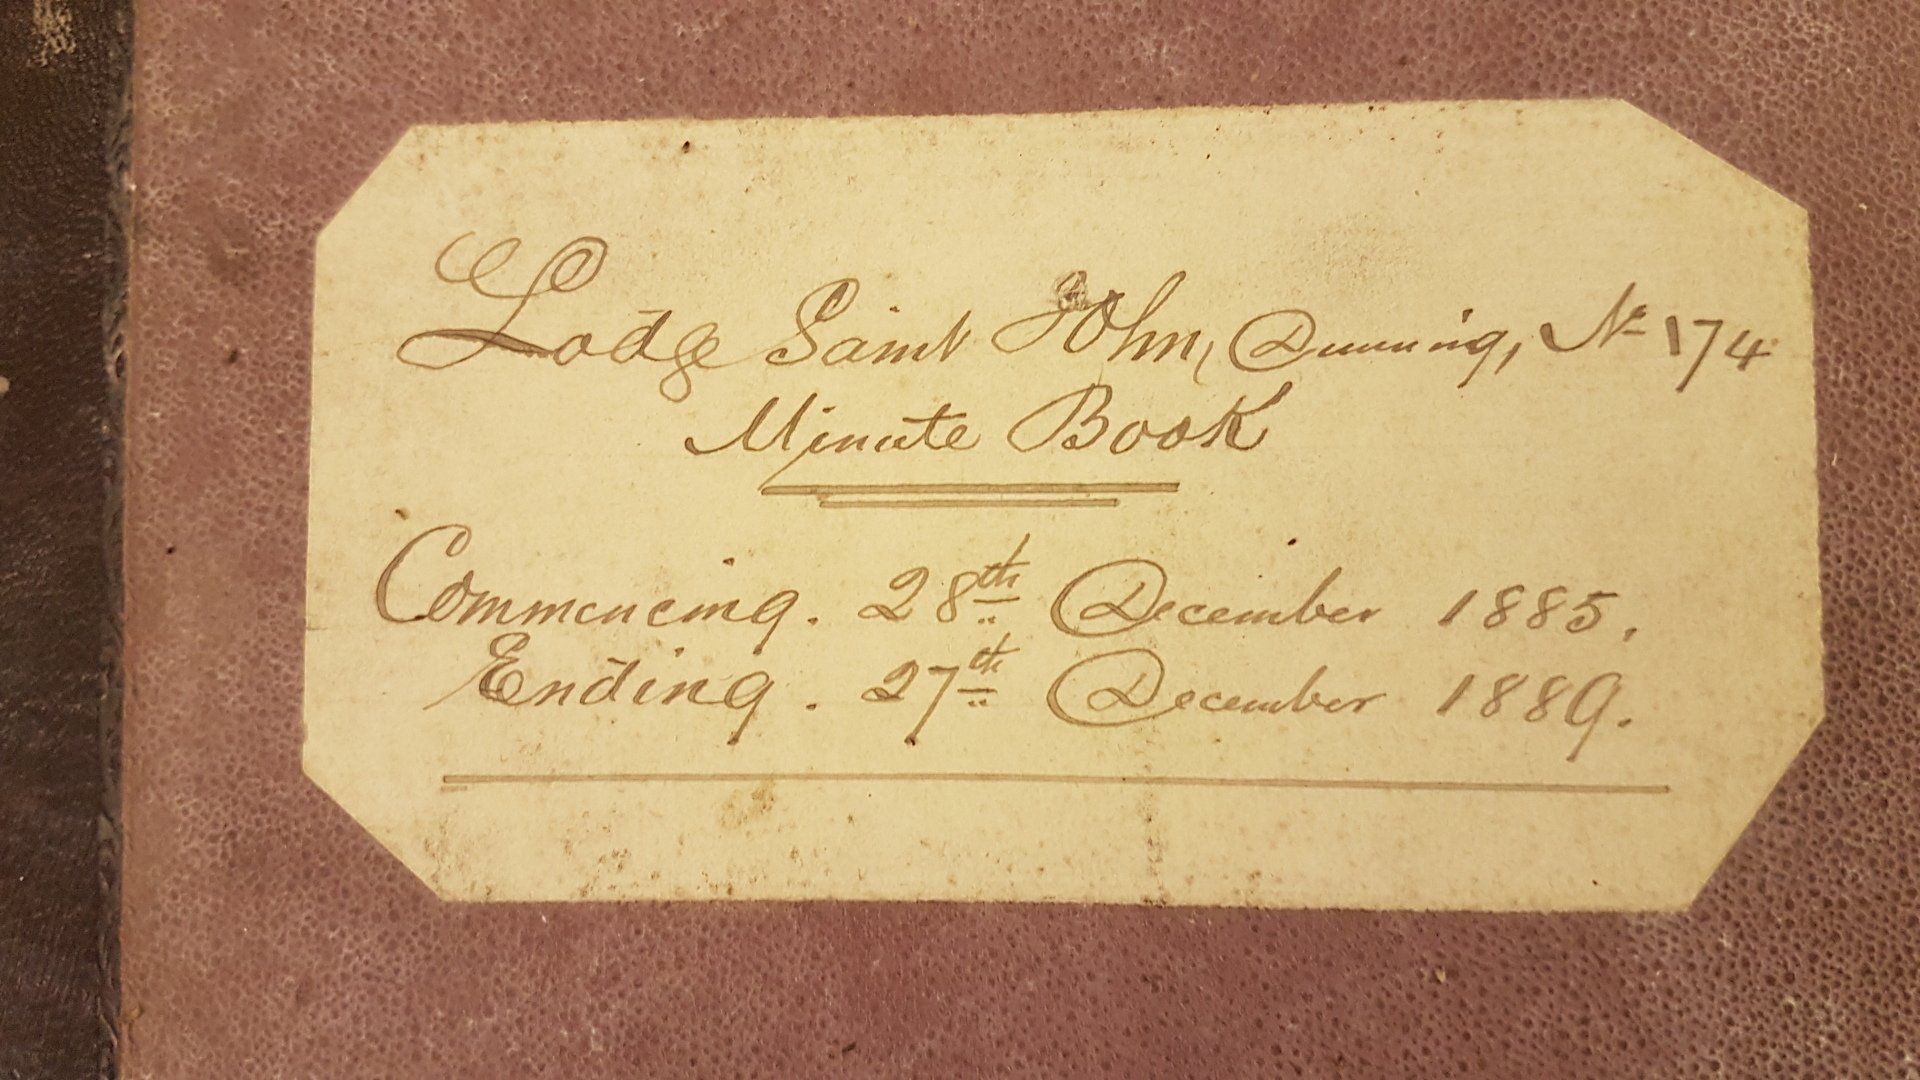 Lodge Saint John, Dunning, No 174
Minute Book
Commencing. 28th December 1885.
Ending. 27th December 1889.